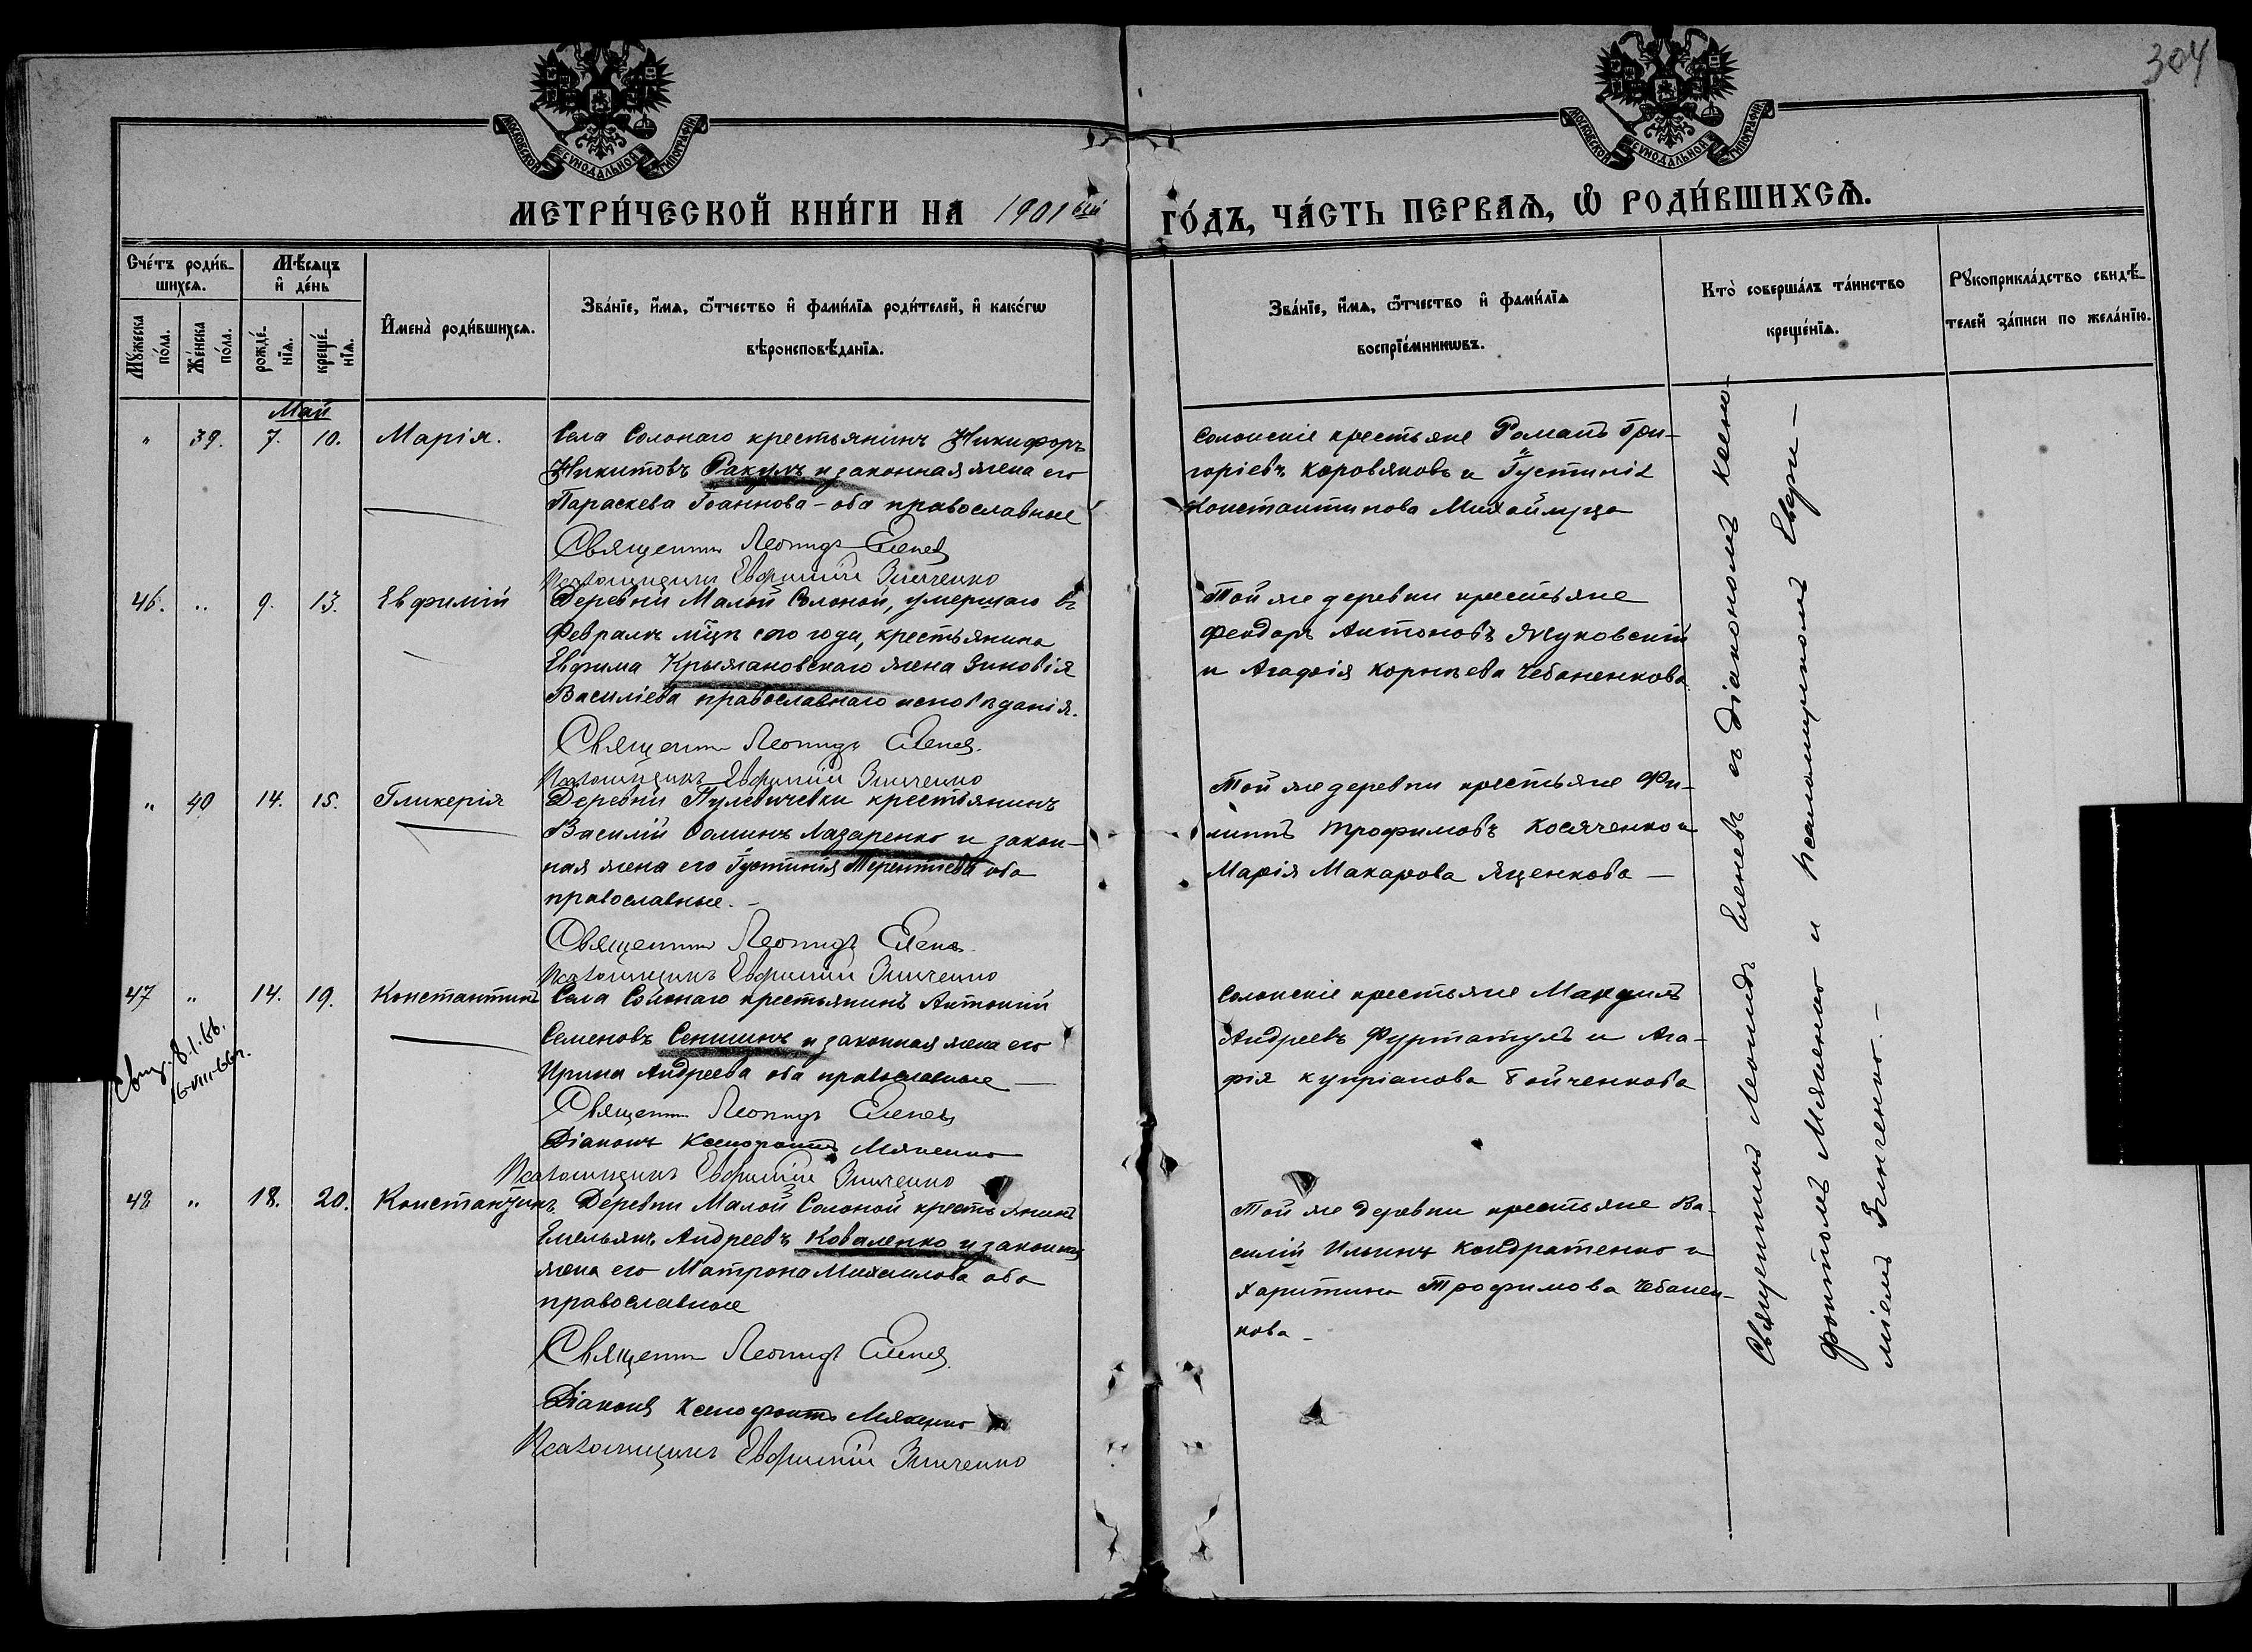 304
МОСКОВСКОЙ СѴНОДАЛЬНОЙ ТИПОГРАФІИ
МОСКОВСКОЙ СѴНОДАЛЬНОЙ ТИПОГРАФІИ
МЕТРИ́ЧЕСКОЙ КНИ́ГИ НА 1901ый ГО́ДЪ, ЧА́СТЬ ПЕРВАѦ, Ѡ҆ РОДИ́ВШИХСѦ.
Сче́тъ роди́в-
шихсѧ.
Мꙋ́жеска по́ла.
Же́нска по́ла.
Мѣ́сѧцъ и҆ де́нь
рожде́-
нїѧ.
креще́-
нїѧ.
И҆мена̀ роди́вшихсѧ.
Зва́нїе, и҆́мѧ, ѻ҆́тчество и҆ фами́лїѧ роди́телей, и҆ како́гѡ
вѣроисповѣ́данїѧ.
Зва́нїе, и҆́мѧ, ѻ҆́тчество и҆ фами́лїѧ
воспрїе́мникѡвъ.
Кто̀ соверша́лъ та́инство
креще́нїѧ.
Рꙋкоприкла́дство свидѣ́-
телей за́писи по жела́нїю.
Май
" 39. 7. 10. Марія.
Села Солонаго крестьянинъ Никифоръ
Никитовъ Ракулъ и законная жена его
Параскева Іоаннова - оба православные
Священникъ Леонидъ Еленевъ
Псаломщикъ Евфимій Зинченко
Солонскіе крестьяне Романъ Гри-
горіевъ Коровяковъ и Іустинія
Константинова Михайлуца
46. " 9. 13. Евфимій
Деревни Малой Солоной, умершаго въ
Февралѣ мцѣ сего года, крестьянина
Евфима Крыжановскаго жена Зиновія
Василіева православнаго исповѣданія.
Священникъ Леонидъ Еленевъ.
Псаломщикъ Евфимій Зинченко
Той же деревни крестьяне
Феодоръ Антоновъ Жуковскій
и Агафія Корнѣева Чебаненкова.
" 40 14. 15. Гликерія
Деревни Пулевичевки крестьянинъ
Василій Фоминъ Лазаренко и закон-
ная жена его Іустинія Терентіева оба
православные. -
Священникъ Леонидъ Еленевъ
Псаломщикъ Евфимій Зинченко
Той же деревни крестьяне Фи-
липпъ Трофимовъ Косяченко и
Марія Макарова Яценкова —
47 " 14. 19. Константинъ
8.1.66.
16-VIII-66г.
Села Солонаго крестьянинъ Антоній
Семеновъ Сенишинъ и законная жена его
Ирина Андреева оба православные —
Священникъ Леонидъ Еленевъ
Діаконъ Ксенофонтъ Мякенко
Псаломщикъ Евфимій Зинченко
Солонскіе крестьяне
Андреевъ Фуртатулъ и Ага-
фія Купріанова Бойченкова
48 " 18. 20. Константинъ.
Деревни Малой Солоной крестьянинъ
Емельянъ Андреевъ Коваленко и законная
жена его Матрона Михаилова оба
православные
Священникъ Леонидъ Еленевъ.
Діаконъ Ксенофонтъ Мякенко
Псаломщикъ Евфимій Зинченко
Той же деревни крестьяне Ва-
силій Ильинъ Кондратенко и
Харитина Трофимова Чебанен-
кова -
Священникъ Леонидъ Еленевъ съ діакономъ Ксено-
фонтомъ Мякенко и псаломщикомъ Евфи-
міемъ Зинченко. -